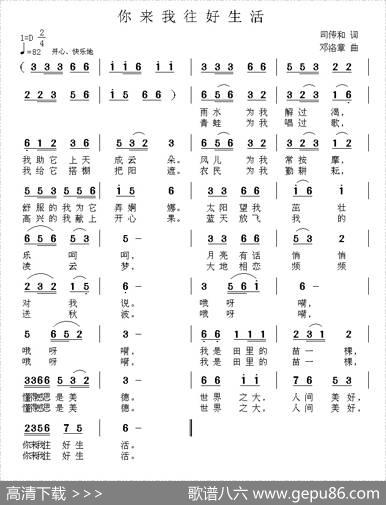 你来我往好生活
1=D 2/4
♩=82 开心、快乐地
司传和 词
邓洛章 曲
( 3 3 3 6 6 | i i 6 i i | 3 3 3 6 6 | i i 6 i i |
2 2 3 5 3 | i 5 6 6 ) | 6 5 6 3 2 | 6 5 6 3 |
雨水 为我 解过 渴,
青蛙 为我 唱过 歌,
6 1 2 3 6 | 5 3 2 | 3 5 3 3 2 | 1 6 2 |
我助它上天 成云 朵。 风儿 为我 常按 摩,
我给它搭棚 把阳 遮。 农民 为我 勤耕 耘,
5 5 3 5 5 5 | 6 5 3 6 | 3 3 3 6 6 | i 6 |
舒服的我为它 弄婀 娜。 太阳望我 茁 壮
高兴的我献上 开心 果。 蓝天放飞 我 的
6 5 6 5 3 | 6 - | 0 3 3 6 6 | 5 3 2 |
乐 呵 呵, 月亮有话 悄 悄
凌 云 梦, 大地相恋 频 频
2 3 2 1 5 | 6 - | 3 5 6 1 | 6 - |
对 我 说。 哦 呀 嗬,
送 秋 波。 哦 呀 嗬,
5 6 5 2 | 3 - | 1 1 1 1 1 | 3 3 5 2 |
哦 呀 嗬, 我是田里的 苗一 棵,
哦 呀 嗬, 我是田里的 苗一 棵,
3 3 6 6 5 3 2 | 3 - | 6 6 i i | 6 5 6 6 |
是美 德。 世界 之大, 人间 美好,
是美 德。 世界 之大, 人间 美好,
2 3 5 6 7 5 | 6 - ‖
你来我往 好生 活。
你来我往 好生 活。
高清下载 >>>
歌谱八六 www.gepu86.com